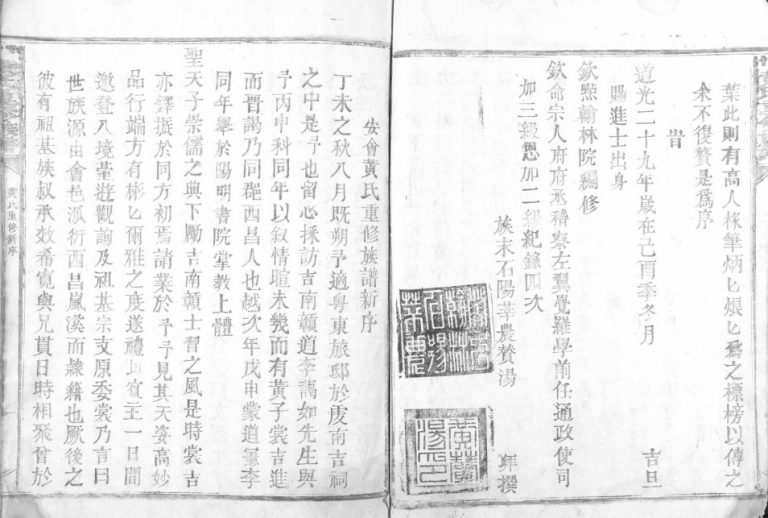 葉此則有高人椽筆炳匕煥匕為之標榜以傳之
余不復贅是為序
旹
道光二十九年歲在己酉季冬月 吉旦
賜進士出身
欽點翰林院編修
欽命宗人府府丞稽察左翼覺羅學前任通政使司
加三級恩加二級紀錄四次
族末石陽莘農贊湯 拜撰
黃贊湯印
安會黃氏重修族譜新序
丁未之秋八月既朔予適粵東旅邸於虔南吉祠
之中是予也留心採訪吉南贛道李藹如先生與
予丙申科同年以敘情暄未幾而有黃子裳吉進
而晋謁乃同郡西昌人也越次年戊申蒙道憲李
同年舉於陽明書院掌教上體
聖天子崇儒之典下勵吉南贛士習之風是時裳吉
亦鐸振於同方初焉請業於予予見其天姿高妙
品行端方有彬匕爾雅之度遂禮以賓主一日間
邀登八境臺遊觀詢及祖基宗支原委裳乃言曰
世族源由會邑派衍西昌嵐溪而隸籍也厥後之
彼有祖基族叔承效希寬與兄貫日時相聚首於
黃氏重修新序